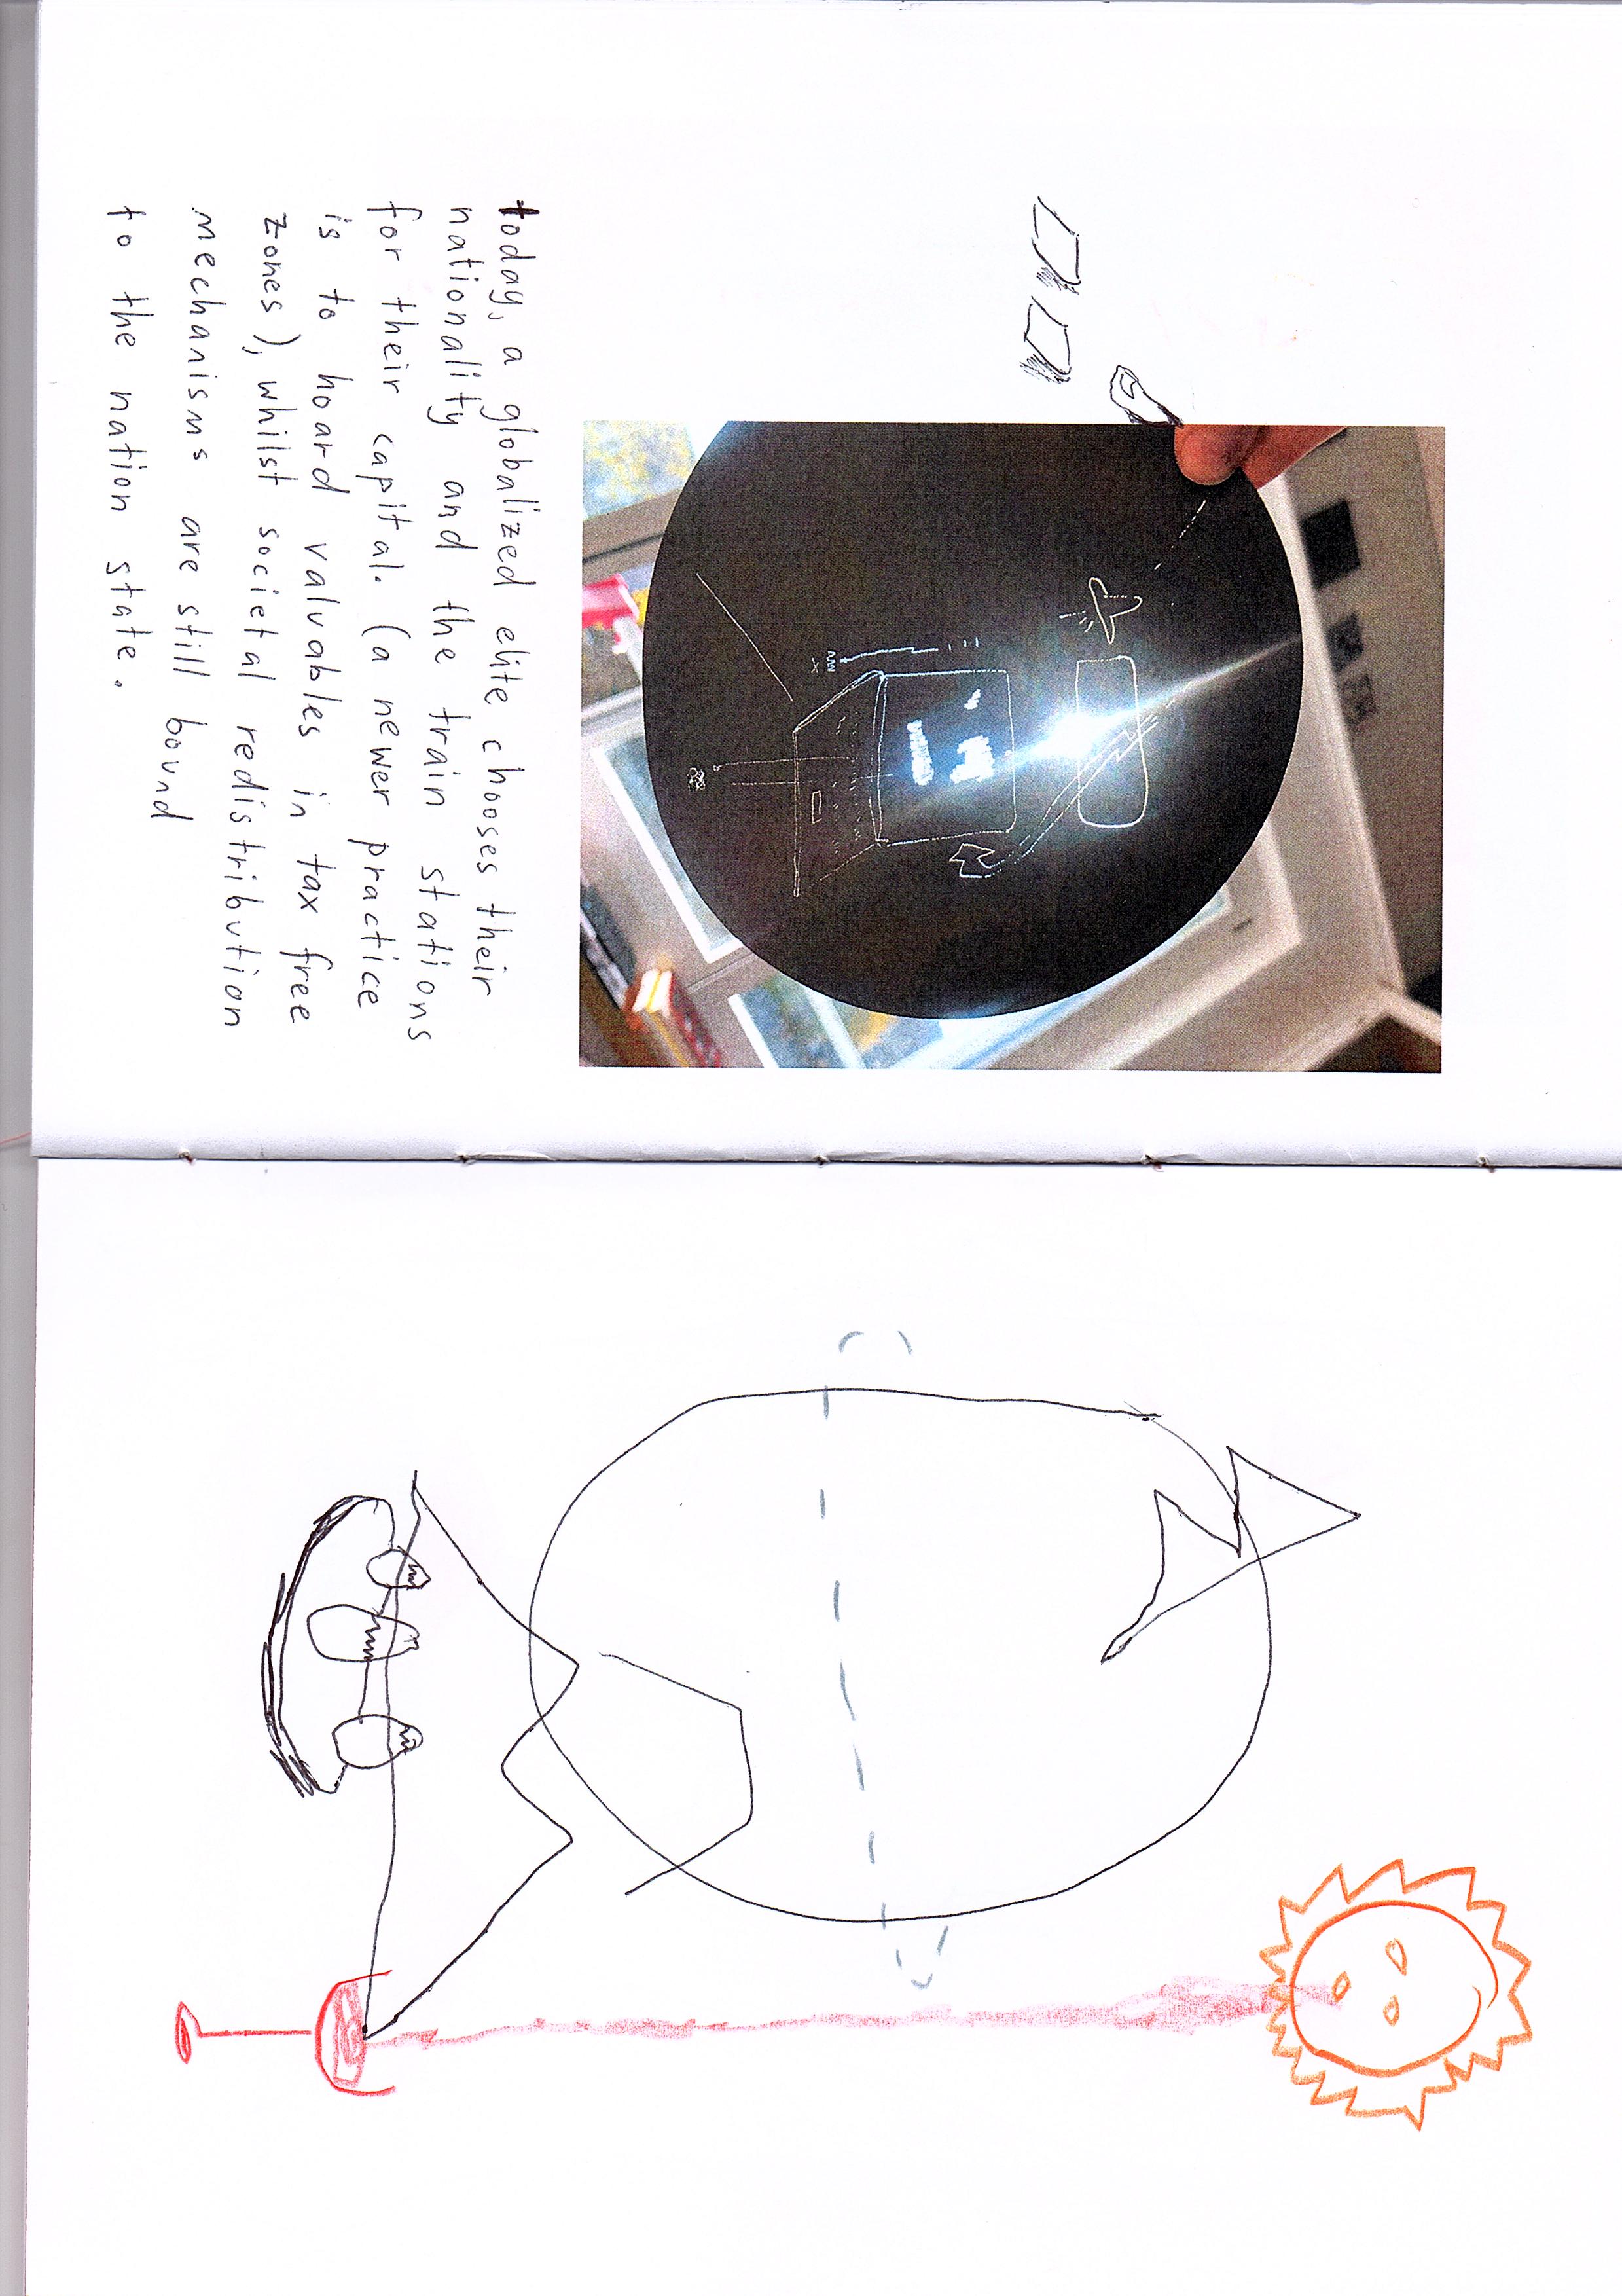 today, a globalized elite chooses their
nationality and the train stations
for their capital. (a newer practice
is to hoard valuables in tax free
zones), whilst societal redistribution
mechanisms are still bound
to the nation state.